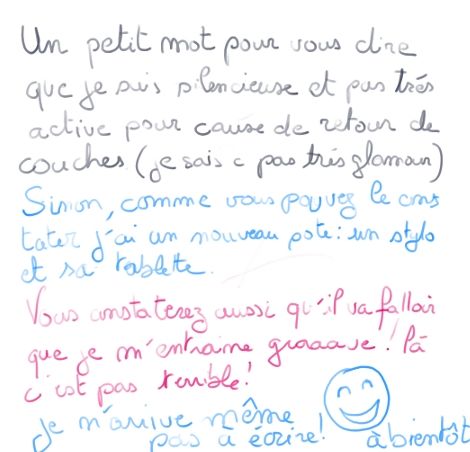 Un petit mot pour vous dire
que je suis silencieuse et pas très
active pour cause de retour de
couches (je sais c pas très glamour)
Sinon, comme vous pouvez le cons
tater j'ai un nouveau pote : un stylo
et sa tablette.
Vous constaterez aussi qu'il va falloir
que je m'entraine graaave ! Là
c'est pas terrible !
Je n'arrive même
pas à écrire ! à bientôt